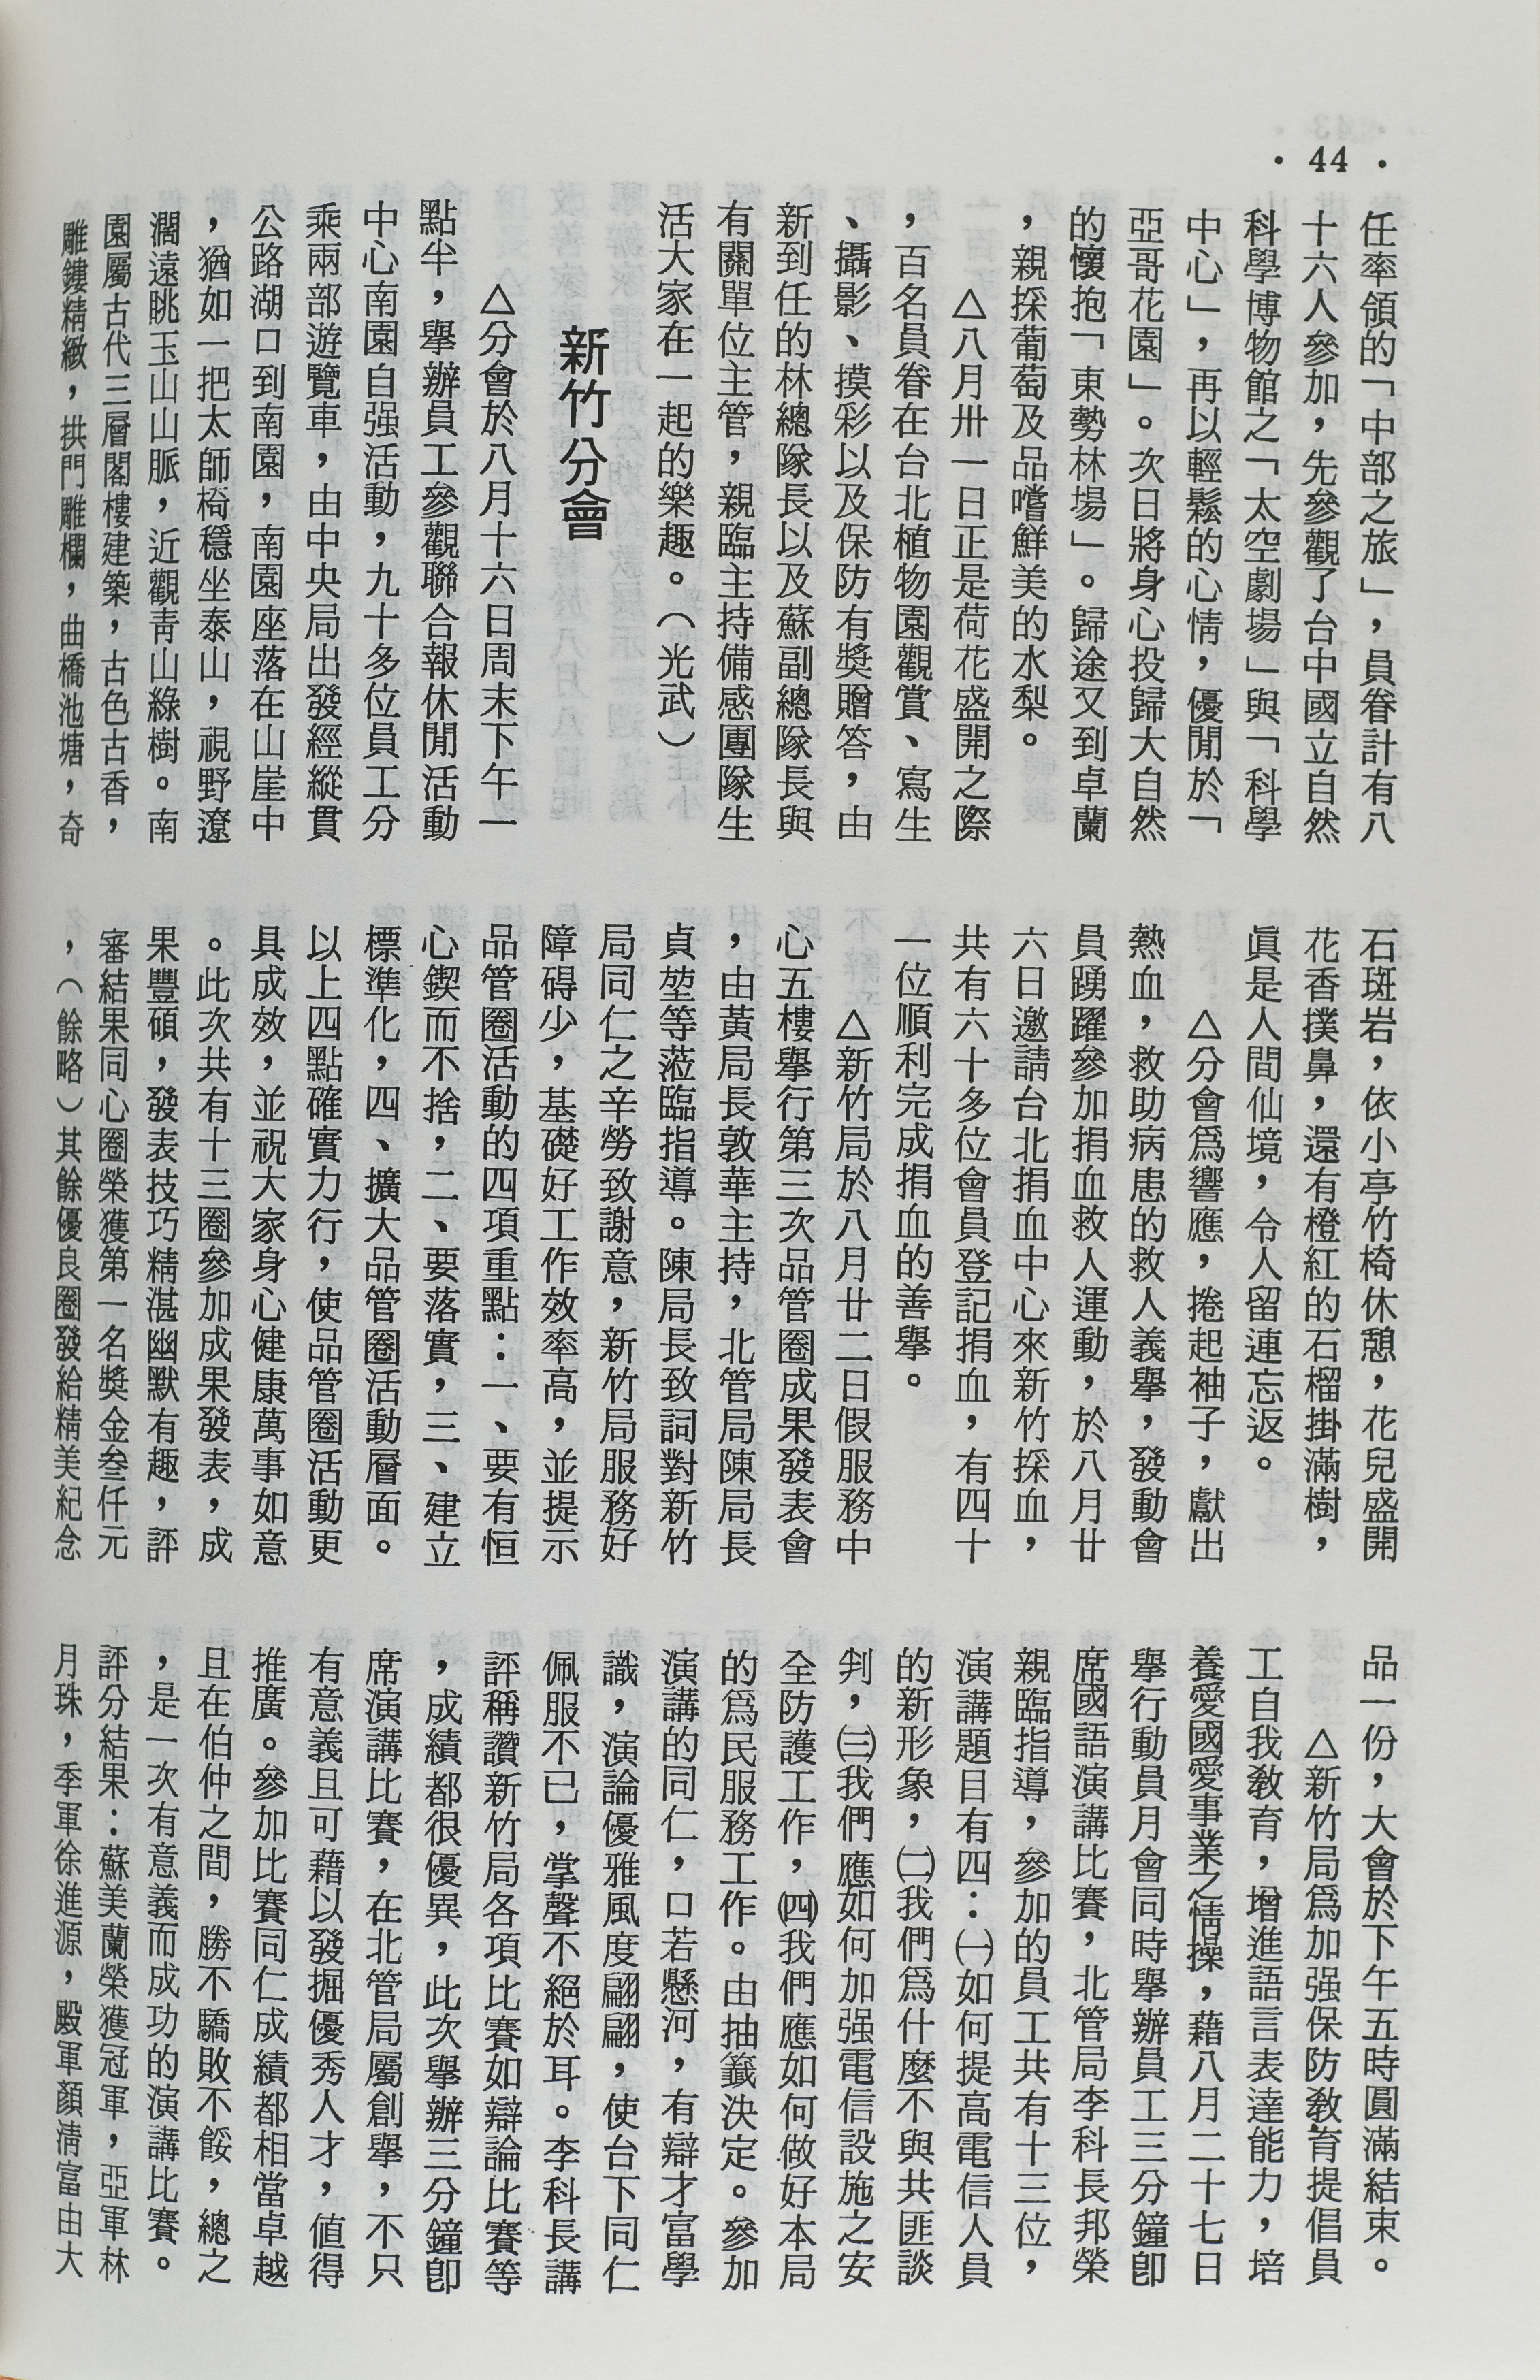 · 44 ·
任率領的「中部之旅」，員眷計有八
十六人參加，先參觀了台中國立自然
科學博物館之「太空劇場」與「科學
中心」，再以輕鬆的心情，優閒於「
亞哥花園」。次日將身心投歸大自然
的懷抱「東勢林場」。歸途又到卓蘭
，親採葡萄及品嚐鮮美的水梨。
△八月卅一日正是荷花盛開之際
，百名員眷在台北植物園觀賞、寫生
、攝影、摸彩以及保防有獎贈答，由
新到任的林總隊長以及蘇副總隊長與
有關單位主管，親臨主持備感團隊生
活大家在一起的樂趣。（光武）
新竹分會
△分會於八月十六日周末下午一
點半，舉辦員工參觀聯合報休閒活動
中心南園自强活動，九十多位員工分
乘兩部遊覽車，由中央局出發經縱貫
公路湖口到南園，南園座落在山崖中
，猶如一把太師椅穩坐泰山，視野遼
濶遠眺玉山山脈，近觀靑山綠樹。南
園屬古代三層閣樓建築，古色古香，
雕鏤精緻，拱門雕欄，曲橋池塘，奇
石斑岩，依小亭竹椅休憩，花兒盛開
花香撲鼻，還有橙紅的石榴掛滿樹，
眞是人間仙境，令人留連忘返。
△分會爲響應，捲起袖子，獻出
熱血，救助病患的救人義擧，發動會
員踴躍參加捐血救人運動，於八月廿
六日邀請台北捐血中心來新竹採血，
共有六十多位會員登記捐血，有四十
一位順利完成捐血的善擧。
△新竹局於八月廿二日假服務中
心五樓舉行第三次品管圈成果發表會
，由黃局長敦華主持，北管局陳局長
貞堃等蒞臨指導。陳局長致詞對新竹
局同仁之辛勞致謝意，新竹局服務好
障碍少，基礎好工作效率高，並提示
品管圈活動的四項重點：一、要有恒
心鍥而不捨，二、要落實，三、建立
標準化，四、擴大品管圈活動層面。
以上四點確實力行，使品管圈活動更
具成效，並祝大家身心健康萬事如意
。此次共有十三圈參加成果發表，成
果豐碩，發表技巧精湛幽默有趣，評
審結果同心圈榮獲第一名獎金叁仟元
，（餘略）其餘優良圈發給精美紀念
品一份，大會於下午五時圓滿結束。
△新竹局爲加强保防敎育提倡員
工自我敎育，增進語言表達能力，培
養愛國愛事業之情操，藉八月二十七日
舉行動員月會同時舉辦員工三分鐘卽
席國語演講比賽，北管局李科長邦榮
親臨指導，參加的員工共有十三位，
演講題目有四：㈠如何提高電信人員
的新形象，㈡我們爲什麼不與共匪談
判，㈢我們應如何加强電信設施之安
全防護工作，㈣我們應如何做好本局
的爲民服務工作。由抽籤決定。參加
演講的同仁，口若懸河，有辯才富學
識，演論優雅風度翩翩，使台下同仁
佩服不已，掌聲不絕於耳。李科長講
評稱讚新竹局各項比賽如辯論比賽等
，成績都很優異，此次舉辦三分鐘卽
席演講比賽，在北管局屬創舉，不只
有意義且可藉以發掘優秀人才，値得
推廣。參加比賽同仁成績都相當卓越
且在伯仲之間，勝不驕敗不餒，總之
，是一次有意義而成功的演講比賽。
評分結果：蘇美蘭榮獲冠軍，亞軍林
月珠，季軍徐進源，殿軍顏淸富由大